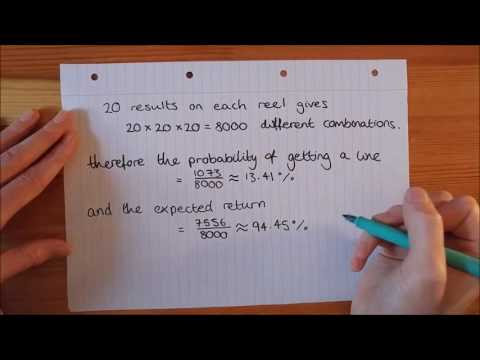 20 results on each reel gives
20 × 20 × 20 = 8000 different combinations.
therefore the probability of getting a line
= 1073/8000 ≈ 13.41%
and the expected return
= 7556/8000 ≈ 94.45%